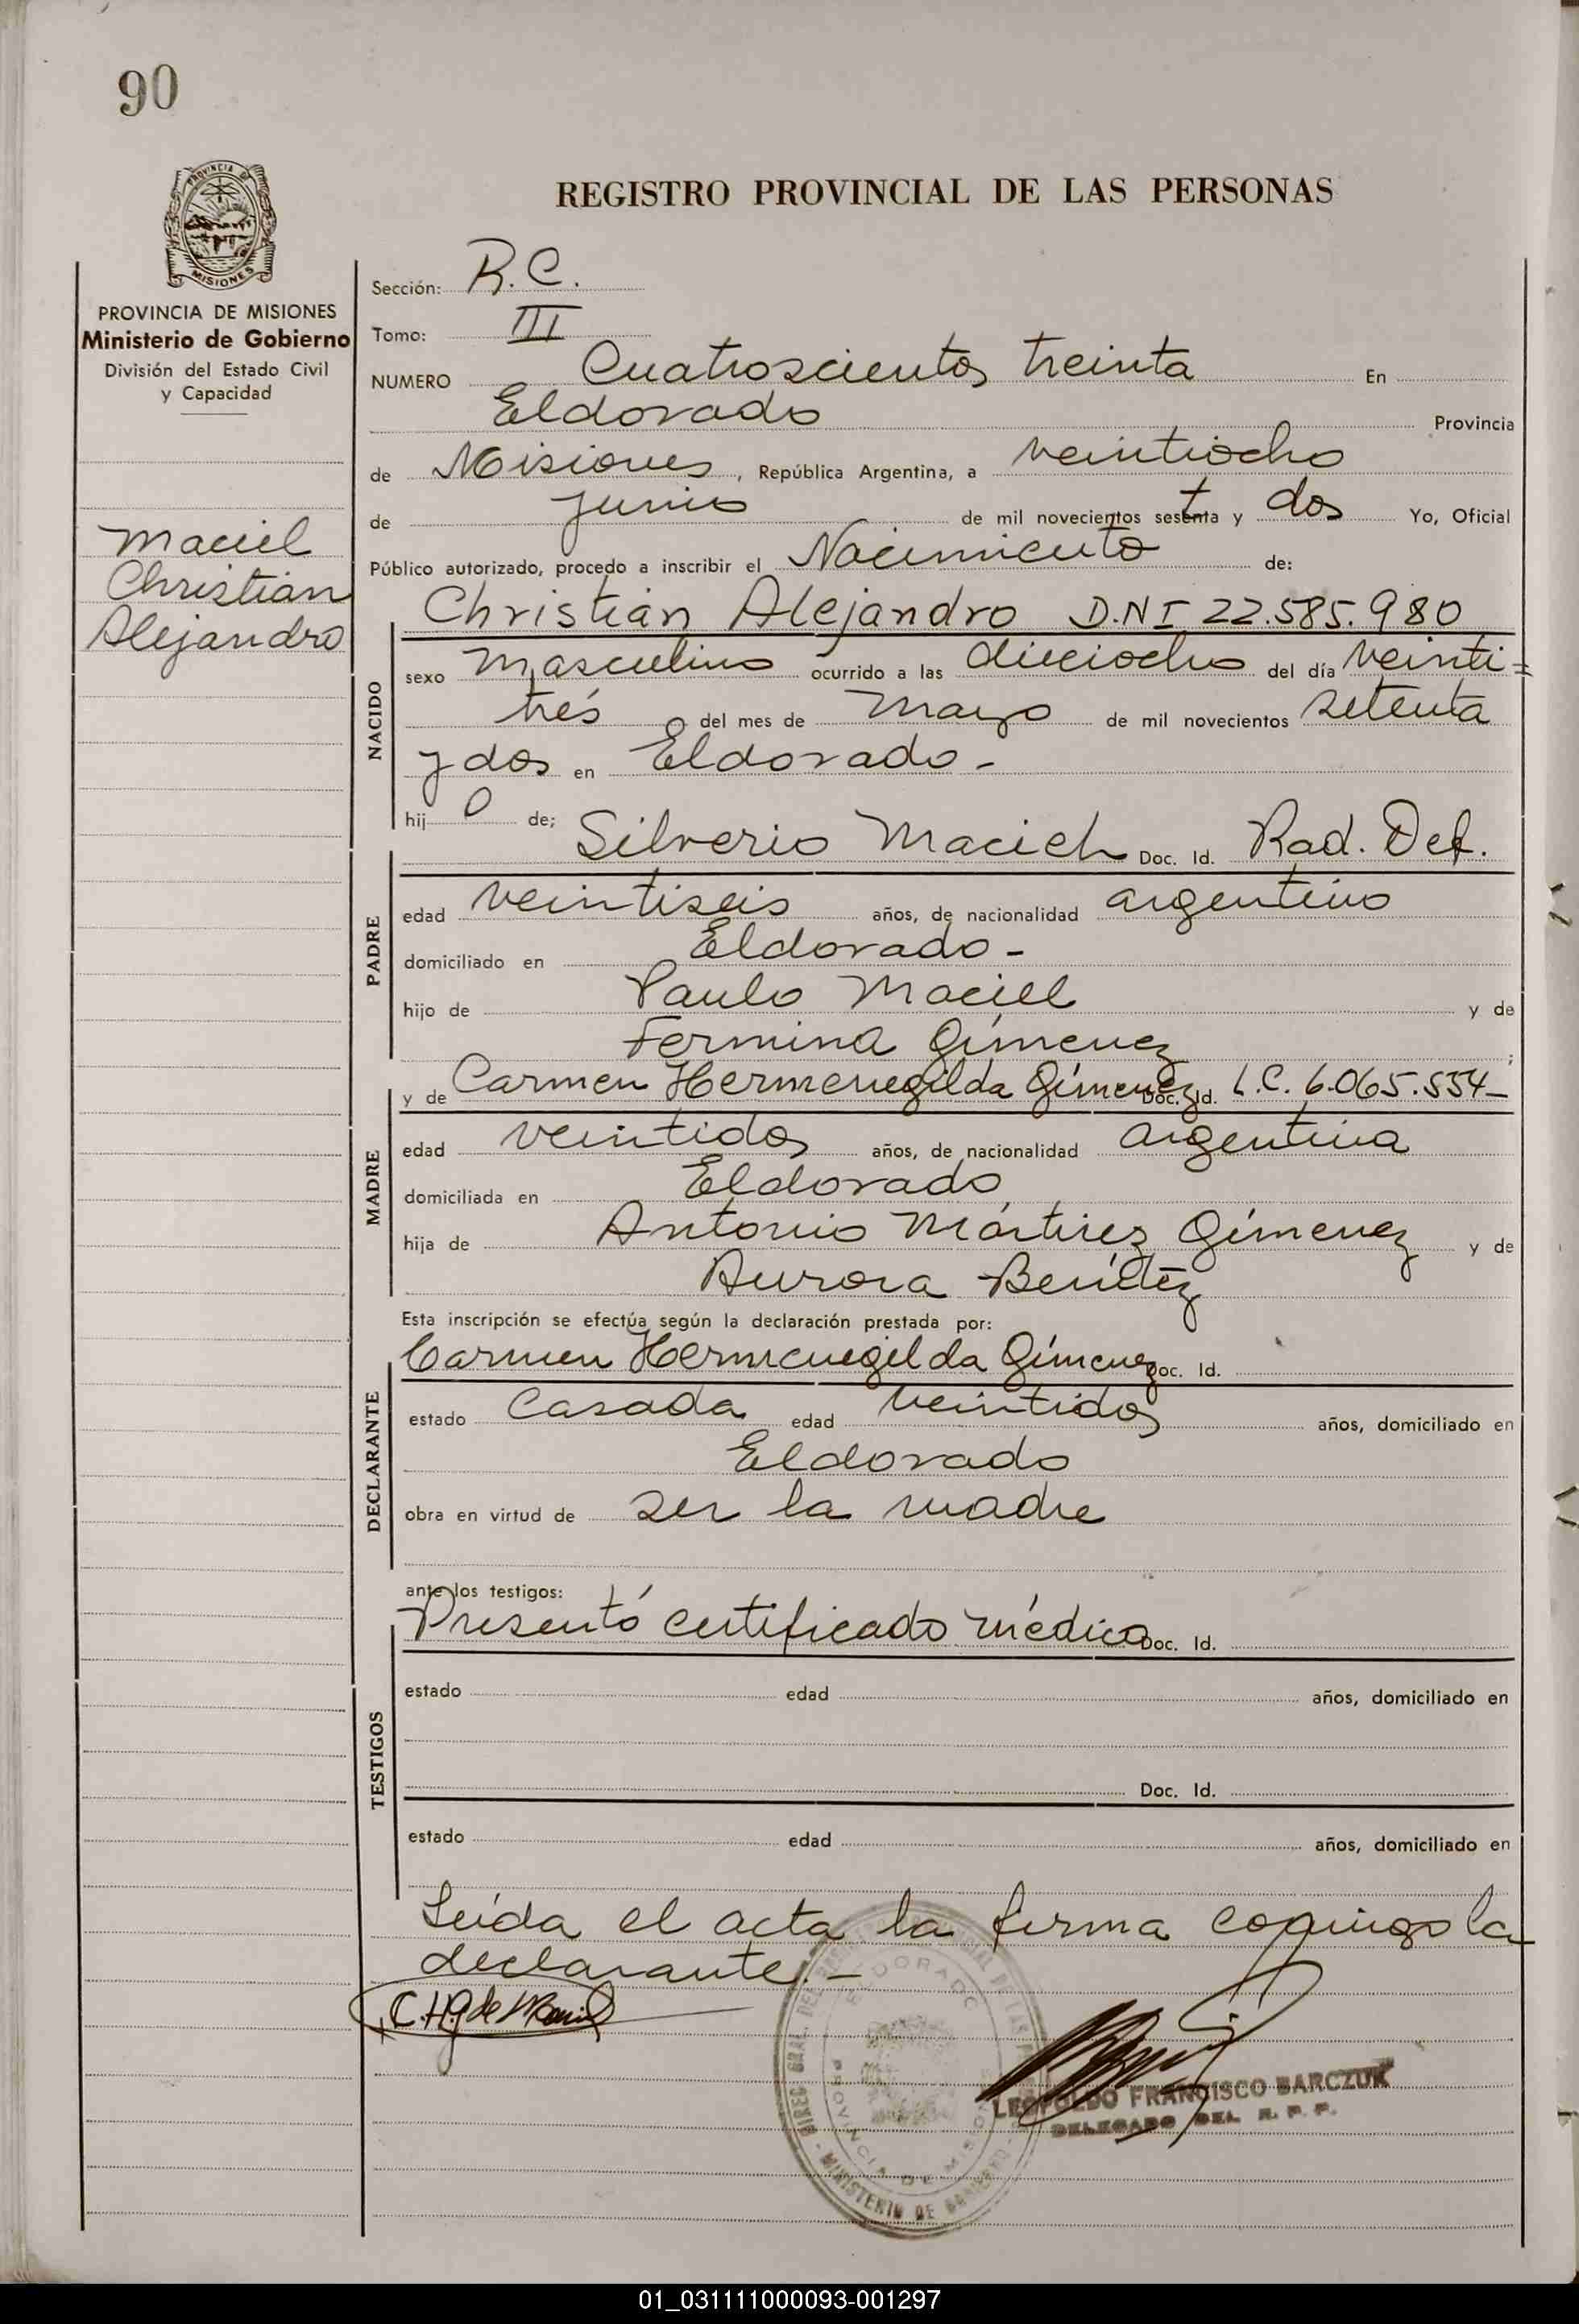 90
PROVINCIA DE
MISIONES
REGISTRO PROVINCIAL DE LAS PERSONAS
PROVINCIA DE MISIONES
Ministerio de Gobierno
División del Estado Civil
y Capacidad
Maciel
Christian
Alejandro
Sección: R.C.
Tomo: III
NUMERO Cuatroscientos treinta En
Eldorado Provincia
de Misiones, República Argentina, a veintiocho
de junio de mil novecientos sesenta y dos Yo, Oficial
Público autorizado, procedo a inscribir el Nacimiento de:
Christian Alejandro D.N.I 22.585.980
NACIDO
sexo masculino ocurrido a las dieciocho del día veinti=
trés del mes de mayo de mil novecientos setenta
y dos en Eldorado -
hij o de;
Silverio Maciel Doc. Id. Rad. Def.
PADRE
edad veintiseis años, de nacionalidad argentino
domiciliado en Eldorado -
hijo de Paulo Maciel y de
Fermina Gímenez ;
y de Carmen Hermenegilda Gímenez Doc. Id. L.C. 6.065.554-
MADRE
edad veintidos años, de nacionalidad argentina
domiciliada en Eldorado
hija de Antonio Mártirez Gímenez y de
Aurora Benítez
Esta inscripción se efectúa según la declaración prestada por:
Carmen Hermenegilda Gímenez Doc. Id.
DECLARANTE
estado casada edad veintidos años, domiciliado en
Eldorado
obra en virtud de ser la madre
ante los testigos:
Presentó certificado médico Doc. Id.
TESTIGOS
estado edad años, domiciliado en
Doc. Id.
estado edad años, domiciliado en
Leída el acta la firma conmigo la
declarante. -
C.H.G de Maciel
ELDORADO
PROVINCIA DE MISIONES
MINISTERIO DE GOBIERNO
LEOPOLDO FRANCISCO BARCZUK
DELEGADO DEL R. P. P.
01_031111000093-001297